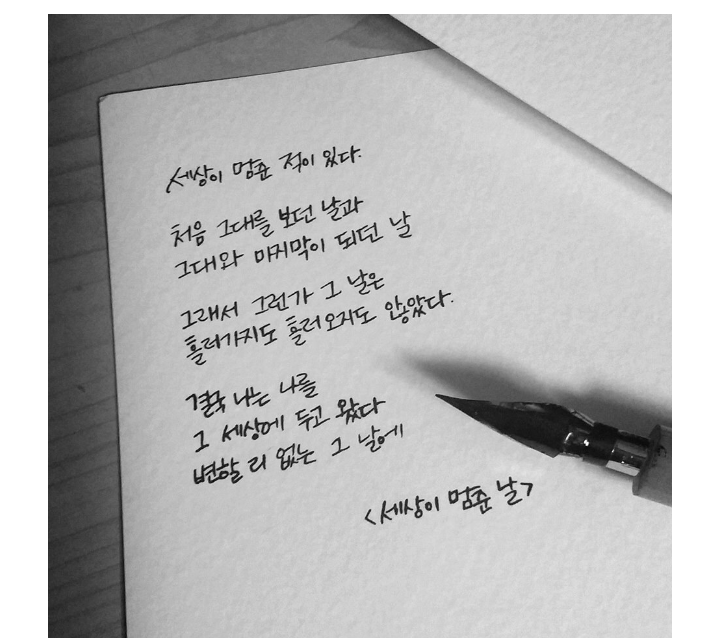 세상이 멈춘 적이 있다.
처음 그대를 보던 날과
그대와 마지막이 되던 날
그래서 그런가 그 날은
흘러가지도 흘러오지도 않았다.
결국 나는 나를
그 세상에 두고 왔다
변할 리 없는 그 날에
<세상이 멈춘 날>